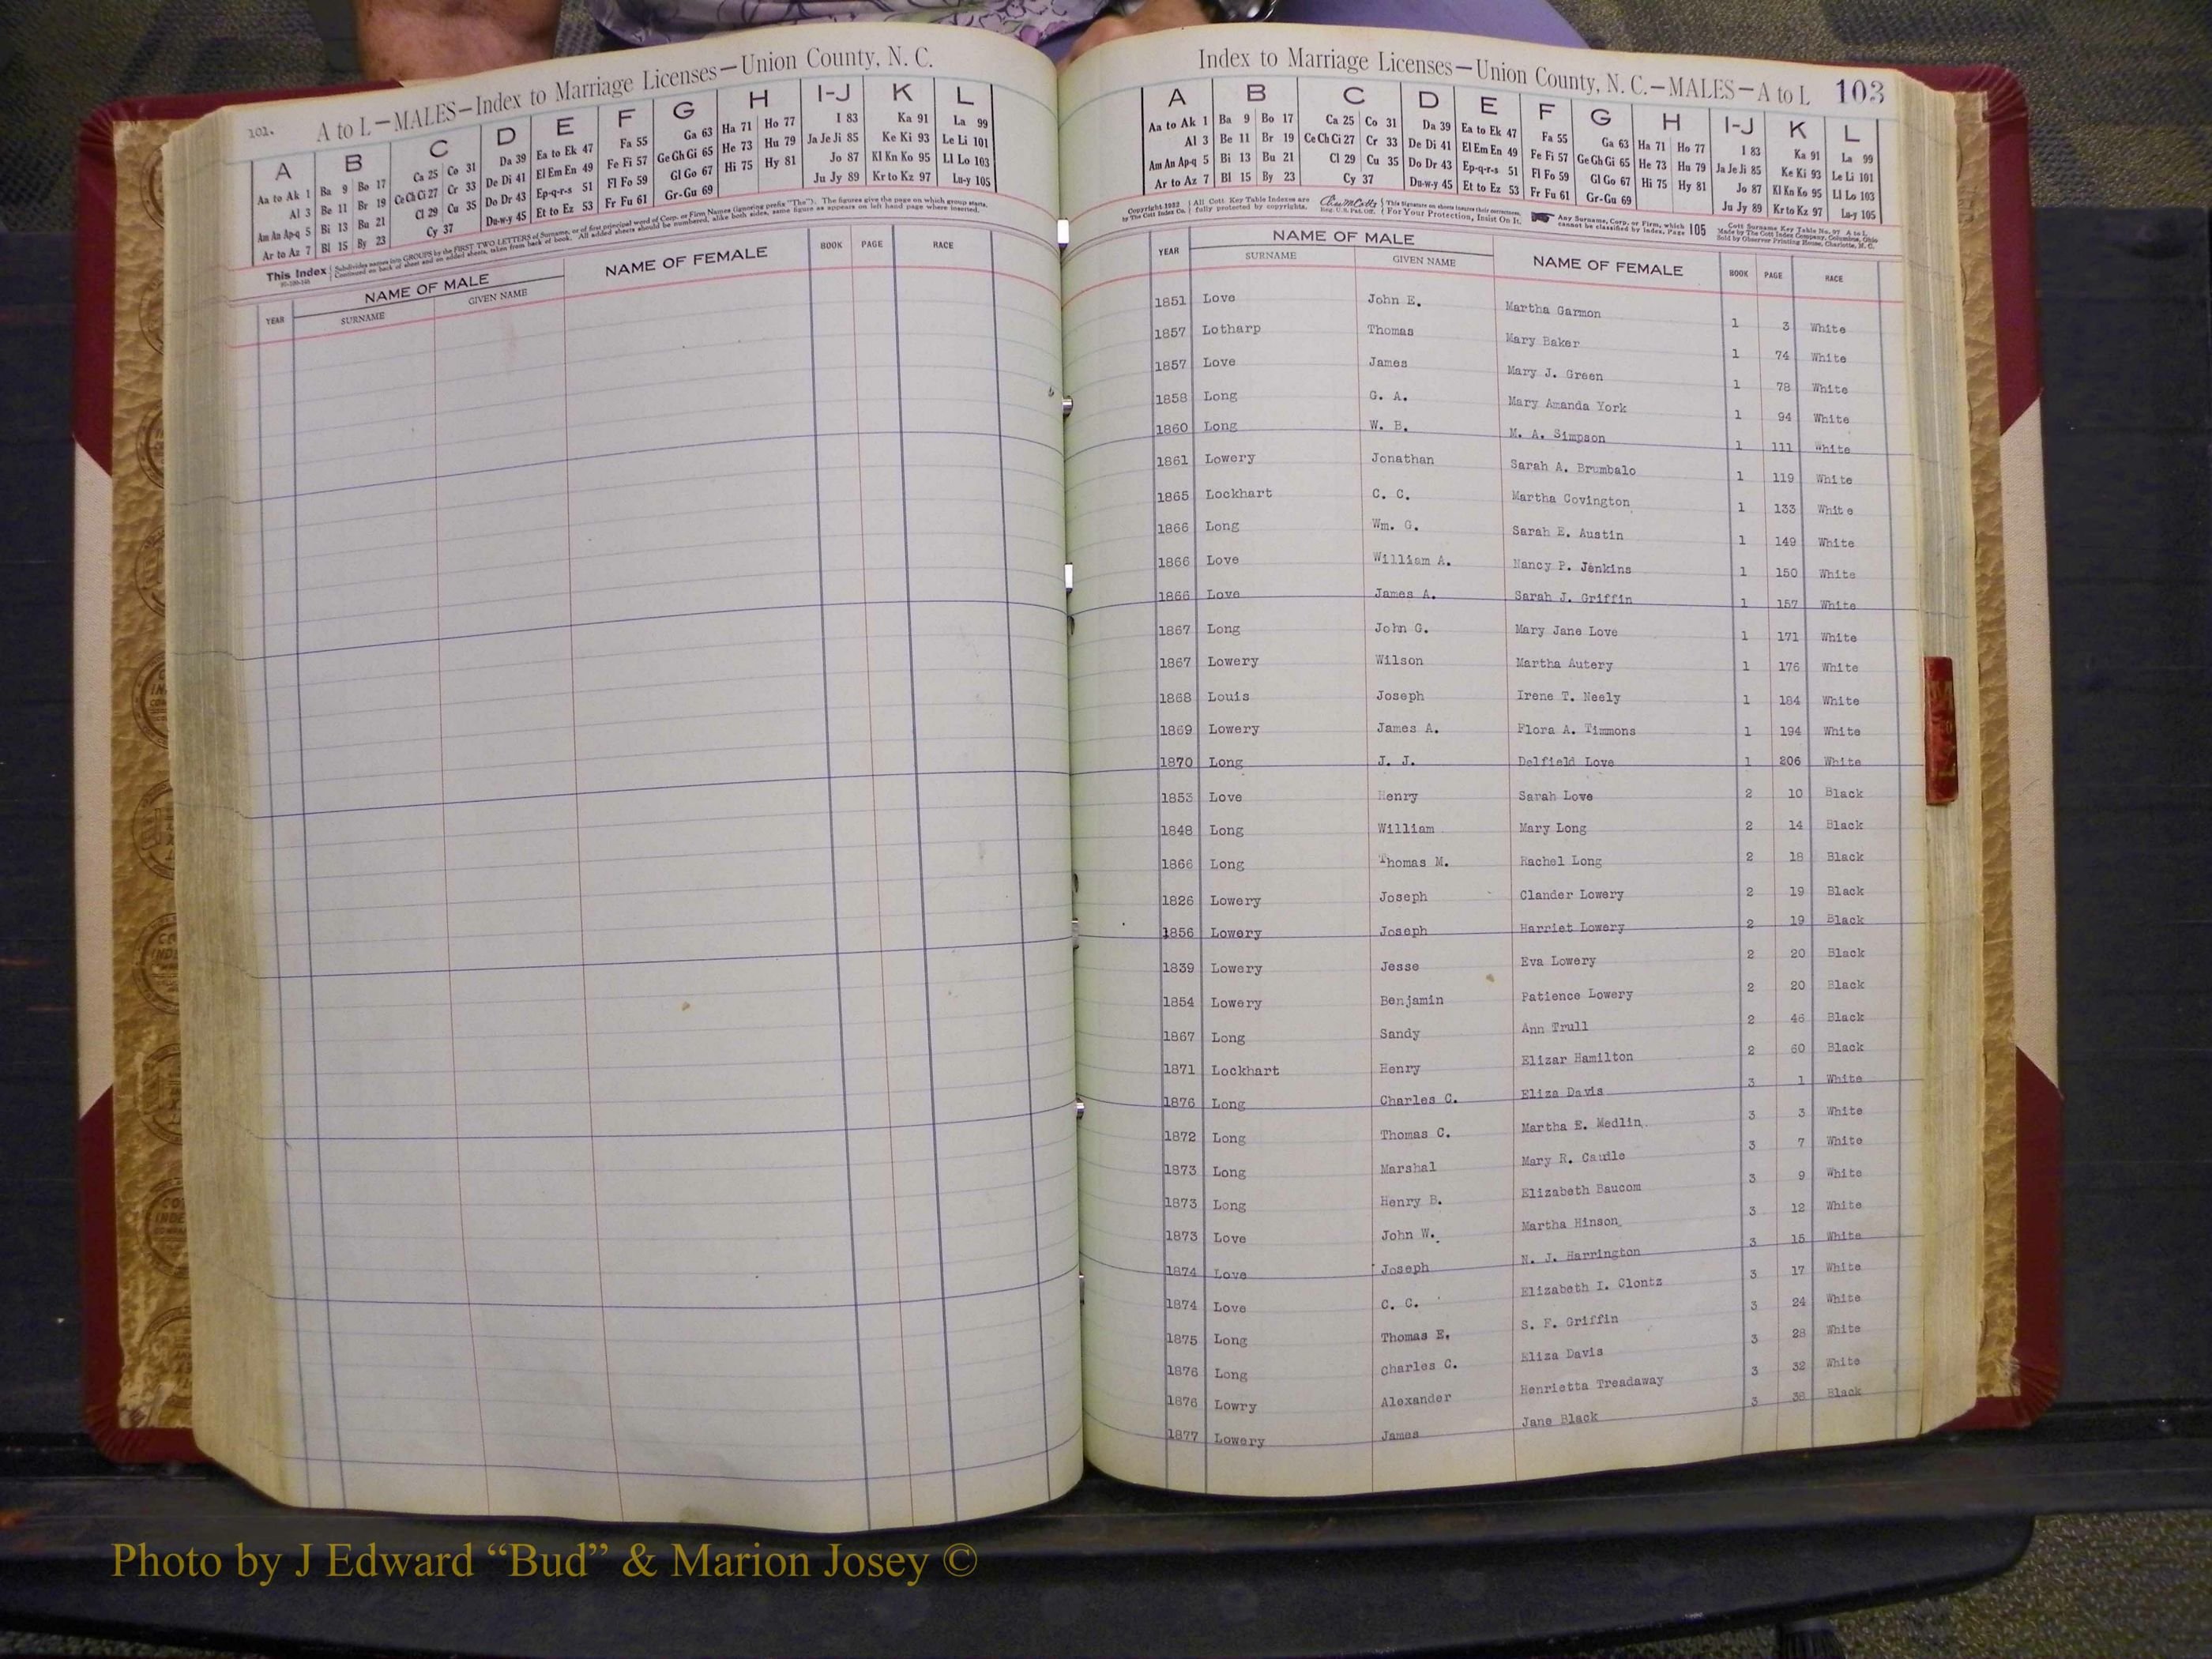 101.
A to L—MALES—Index to Marriage Licenses—Union County, N. C.
A B C D E F G H I-J K L
Aa to Ak 1 Ba 9 Bo 17 Ca 25 Co 31 Da 39 Ea to Ek 47 Fa 55 Ga 63 Ha 71 Ho 77 I 83 Ka 91 La 99
Al 3 Be 11 Br 19 Ce Ch Ci 27 Cr 33 De Di 41 El Em En 49 Fe Fi 57 Ge Gh Gi 65 He 73 Hu 79 Ja Je Ji 85 Ke Ki 93 Le Li 101
Am An Ap-q 5 Bi 13 Bu 21 Cl 29 Cu 35 Do Dr 43 Ep-q-r-s 51 Fl Fo 59 Gl Go 67 Hi 75 Hy 81 Jo 87 Kl Kn Ko 95 Ll Lo 103
Ar to Az 7 Bl 15 By 23 Cy 37 Du-w-y 45 Et to Ez 53 Fr Fu 61 Gr-Gu 69 Ju Jy 89 Kr to Kz 97 Lu-y 105
This Index Subdivides names into GROUPS by the FIRST TWO LETTERS of Surname, or of first principal word of Corp. or Firm Names (ignoring prefix "The"). The figures give the page on which group starts.
Continued on back of sheet and on added sheets, taken from back of book. All added sheets should be numbered, alike both sides, same figure as appears on left hand page where inserted.
YEAR NAME OF MALE NAME OF FEMALE BOOK PAGE RACE
SURNAME GIVEN NAME
Index to Marriage Licenses—Union County, N. C.—MALES—A to L 103
A B C D E F G H I-J K L
Aa to Ak 1 Ba 9 Bo 17 Ca 25 Co 31 Da 39 Ea to Ek 47 Fa 55 Ga 63 Ha 71 Ho 77 I 83 Ka 91 La 99
Al 3 Be 11 Br 19 Ce Ch Ci 27 Cr 33 De Di 41 El Em En 49 Fe Fi 57 Ge Gh Gi 65 He 73 Hu 79 Ja Je Ji 85 Ke Ki 93 Le Li 101
Am An Ap-q 5 Bi 13 Bu 21 Cl 29 Cu 35 Do Dr 43 Ep-q-r-s 51 Fl Fo 59 Gl Go 67 Hi 75 Hy 81 Jo 87 Kl Kn Ko 95 Ll Lo 103
Ar to Az 7 Bl 15 By 23 Cy 37 Du-w-y 45 Et to Ez 53 Fr Fu 61 Gr-Gu 69 Ju Jy 89 Kr to Kz 97 Lu-y 105
All Cott Key Table Indexes are fully protected by copyrights. This signature on sheets insures their correctness. For Your Protection, Insist On It. Any Surname, Corp. or Firm, which cannot be classified by index, Page 105
YEAR NAME OF MALE NAME OF FEMALE BOOK PAGE RACE
SURNAME GIVEN NAME
1851 Love John E. Martha Garmon 1 3 White
1857 Lotharp Thomas Mary Baker 1 74 White
1857 Love James Mary J. Green 1 78 White
1858 Long G. A. Mary Amanda York 1 94 White
1860 Long W. B. M. A. Simpson 1 111 White
1861 Lowery Jonathan Sarah A. Brumbalo 1 119 White
1865 Lockhart C. C. Martha Covington 1 133 White
1866 Long Wm. G. Sarah E. Austin 1 149 White
1866 Love William A. Nancy P. Jenkins 1 150 White
1866 Love James A. Sarah J. Griffin 1 157 White
1867 Long John G. Mary Jane Love 1 171 White
1867 Lowery Wilson Martha Autery 1 176 White
1868 Louis Joseph Irene T. Neely 1 184 White
1869 Lowery James A. Flora A. Timmons 1 194 White
1870 Long J. J. Delfield Love 1 206 White
1853 Love Henry Sarah Love 2 10 Black
1848 Long William Mary Long 2 14 Black
1866 Long Thomas M. Rachel Long 2 18 Black
1826 Lowery Joseph Clander Lowery 2 19 Black
1856 Lowery Joseph Harriet Lowery 2 19 Black
1839 Lowery Jesse Eva Lowery 2 20 Black
1854 Lowery Benjamin Patience Lowery 2 20 Black
1867 Long Sandy Ann Trull 2 46 Black
1871 Lockhart Henry Elizar Hamilton 2 60 Black
1876 Long Charles C. Eliza Davis 3 1 White
1872 Long Thomas C. Martha E. Medlin 3 3 White
1873 Long Marshal Mary R. Caudle 3 7 White
1873 Long Henry B. Elizabeth Baucom 3 9 White
1873 Love John W. Martha Hinson 3 12 White
1874 Love Joseph N. J. Harrington 3 15 White
1874 Love C. C. Elizabeth I. Clontz 3 17 White
1875 Long Thomas E. S. F. Griffin 3 24 White
1876 Long Charles C. Eliza Davis 3 28 White
1876 Lowry Alexander Henrietta Treadaway 3 32 White
1877 Lowery James Jane Black 3 38 Black
Photo by J Edward “Bud” & Marion Josey ©